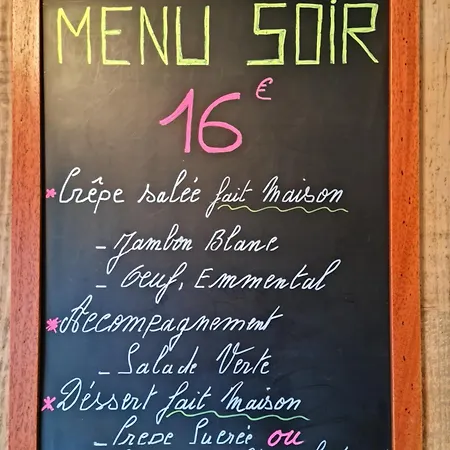 MENU SOIR
16 €
* Crêpe salée fait Maison
- Jambon Blanc
- Oeuf, Emmental
* Accompagnement
- Salade Verte
* Déssert fait Maison
- Crepe Sucrée ou